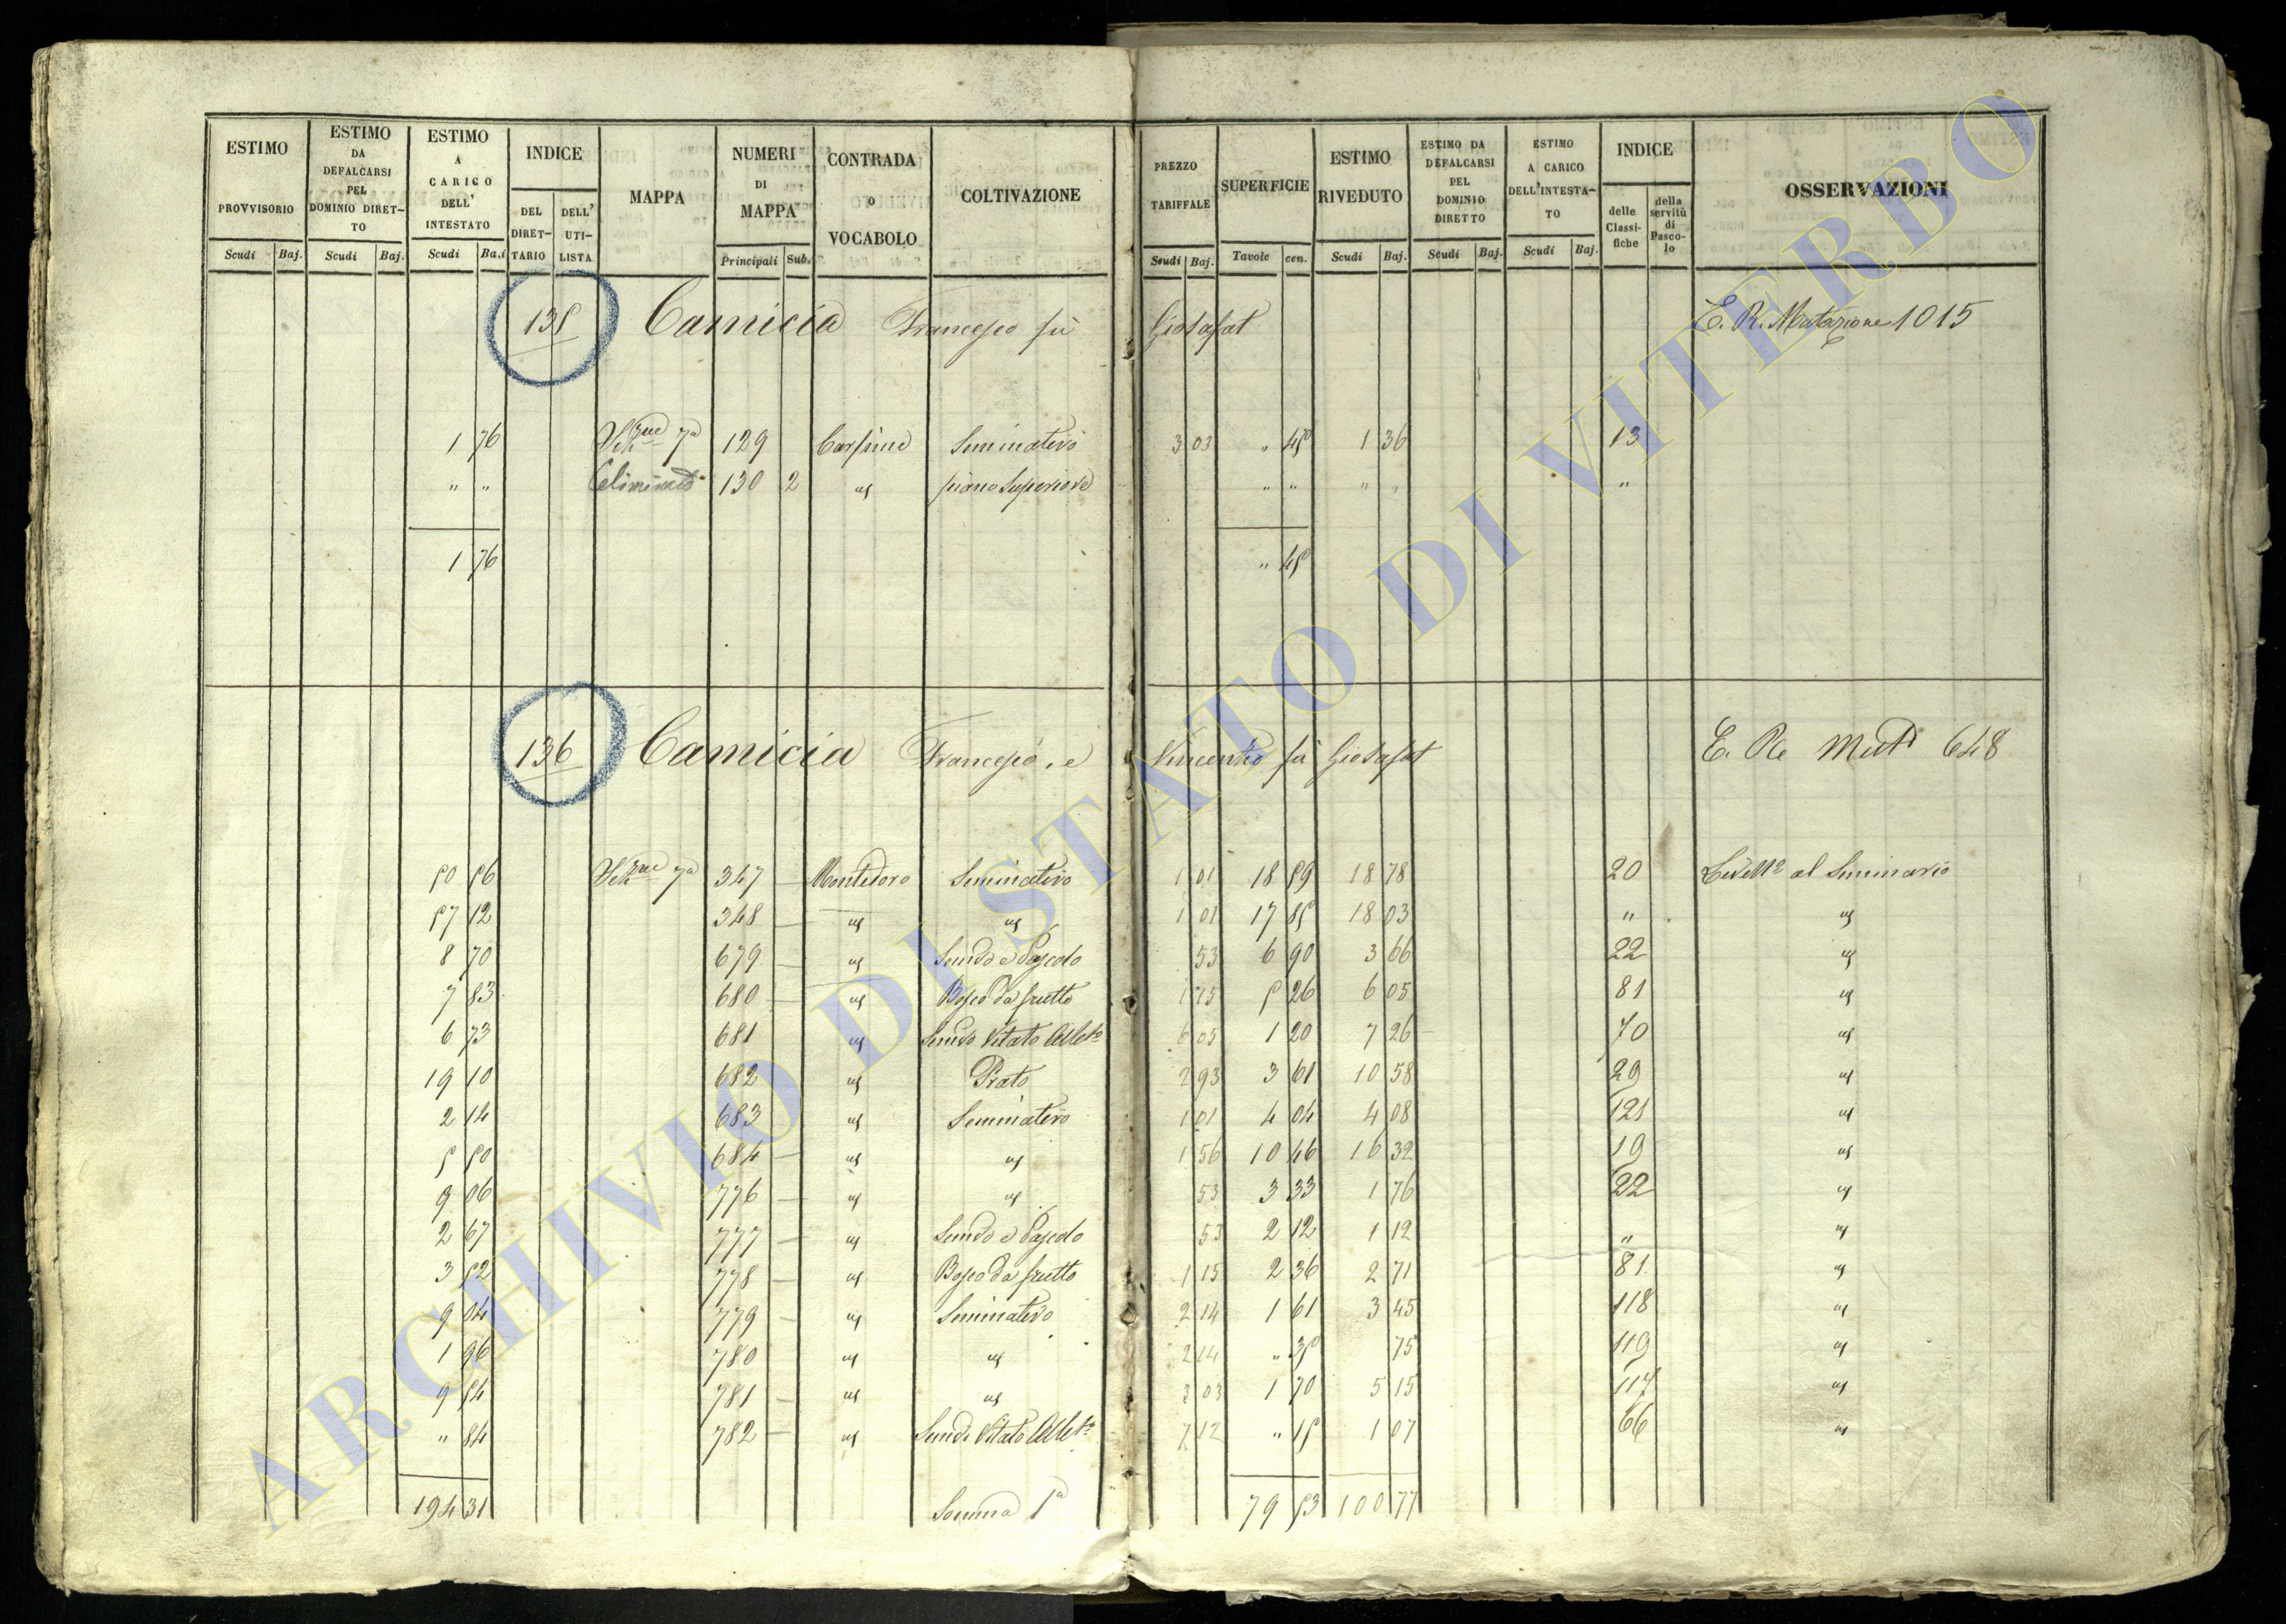 ESTIMO PROVVISORIO Scudi Baj.
ESTIMO DA DEFALCARSI PEL DOMINIO DIRET-TO Scudi Baj.
ESTIMO A CARICO DELL' INTESTATO Scudi Baj.
INDICE DEL DIRET-TARIO DELL' UTI-LISTA
MAPPA
NUMERI DI MAPPA Principali Sub.
CONTRADA O VOCABOLO
COLTIVAZIONE
PREZZO TARIFFALE Scudi Baj.
SUPERFICIE Tavole cen.
ESTIMO RIVEDUTO Scudi Baj.
ESTIMO DA DEFALCARSI PEL DOMINIO DIRETTO Scudi Baj.
ESTIMO A CARICO DELL'INTESTA-TO Scudi Baj.
INDICE delle Classi-fiche della servitù di Pasco-lo
OSSERVAZIONI
135 Camicia Francesco fù Giosafat E. R. Mutazione 1015
1 76 Sez.ne 7a 129 Seminativo 3 03 " 45 1 36 13
" " 130 2 us piano Superiore " " " " "
1 76 " 45
136 Camicia Francesco, e Vincenzo fù Giosafat E. Re Mutd 648
50 56 Sez.ne 7a 347 — Montedoro Seminativo 1 01 18 59 18 78 20 Livello al Seminario
57 12 348 — us us 1 01 17 85 18 03 " us
8 70 679 — us Semdo e Pascolo 53 6 90 3 66 22 us
7 83 680 — us Bosco da frutto 1 15 5 26 6 05 81 us
6 73 681 us Semdo Vitato Albto 6 05 1 20 7 26 70 us
19 10 682 us Prato 2 93 3 61 10 58 29 us
2 14 683 us Seminativo 1 01 4 04 4 08 121 us
5 50 684 — us us 1 56 10 46 16 32 19 us
9 06 776 — us us 53 3 33 1 76 22 us
2 67 777 — us Semdo e Pascolo 53 2 12 1 12 " us
3 52 778 — us Bosco da frutto 1 15 2 36 2 71 81 us
9 04 779 — us Seminativo 2 14 1 61 3 45 118 us
1 96 780 us us 2 14 " 35 75 119 us
9 54 781 — us us 3 03 1 70 5 15 117 us
" 84 782 — us Semdo Vitato Albto 7 12 " 15 1 07 66 us
194 31 Somma 1a 79 53 100 77
ARCHIVIO DI STATO DI VITERBO